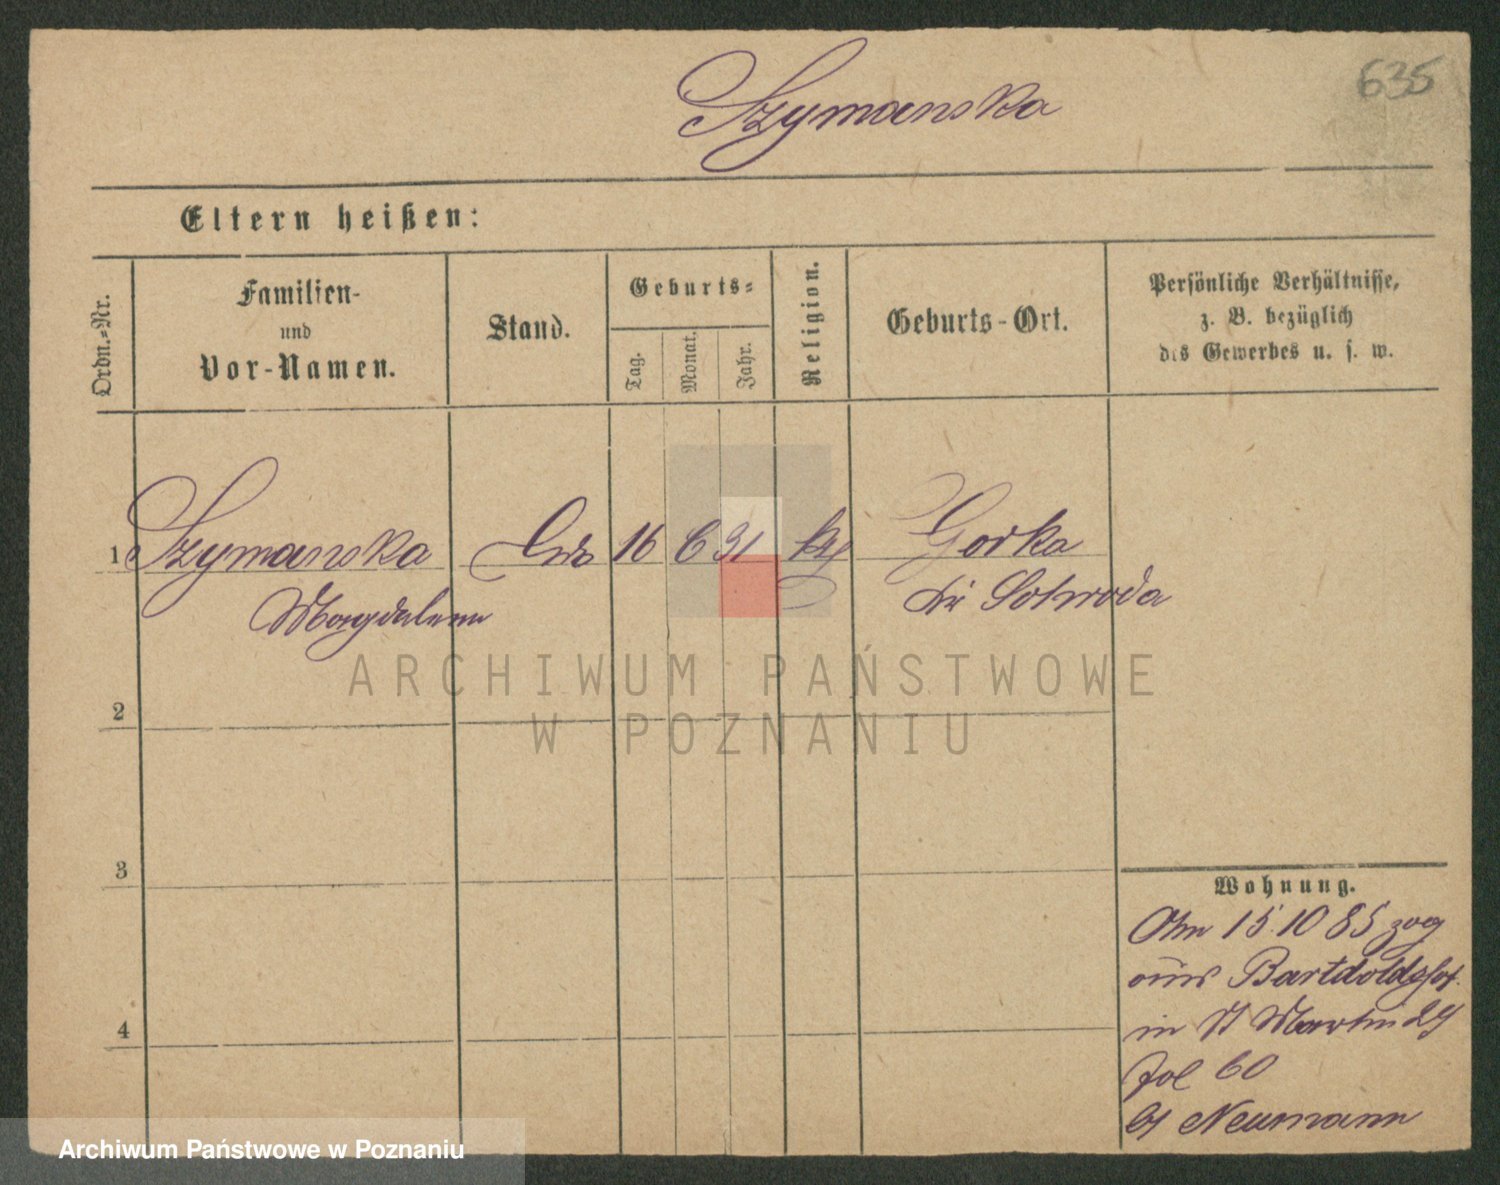 635
Szymanska
Eltern heißen:
Ordn.-Nr.
Familien-
und
Vor-Namen.
Stand.
Geburts-
Tag.
Monat.
Jahr.
Religion.
Geburts-Ort.
Persönliche Verhältnisse,
z. B. bezüglich
des Gewerbes u. s. w.
1 Szymanska 16 6 31 Gorka
Magdalena
2
3
4
Wohnung.
15.10 85 zog
aus
in St Martin
Fol 60
bei Neumann
ARCHIWUM PAŃSTWOWE
W POZNANIU
Archiwum Państwowe w Poznaniu